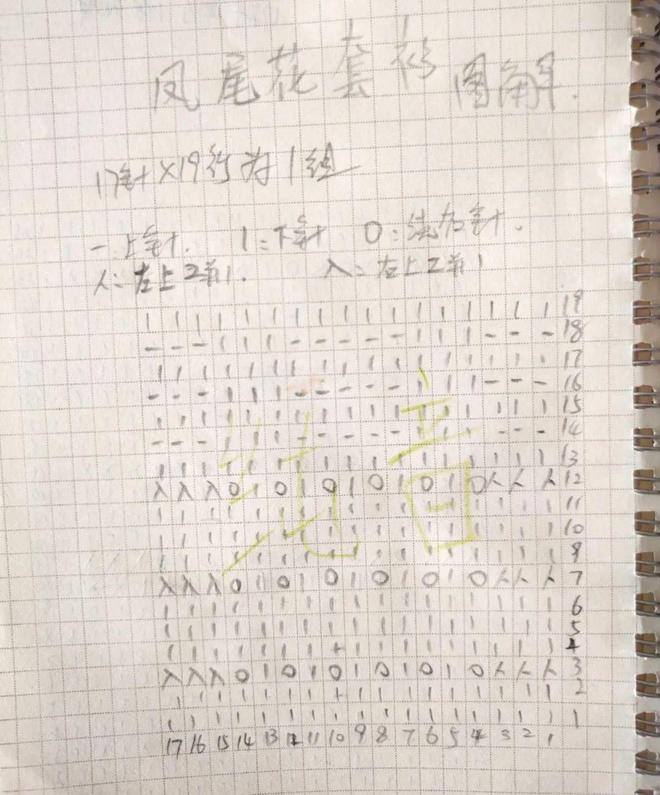 凤尾花套衫图解.
17针×19行为1组
一上针. 1:下针 O:绕加针.
人:左上2并1. 入:右上2并1
| | | | | | | | | | | | | | | | | 19
- - - | | | - - - - - | | | - - - 18
| | | | | | | | | | | | | | | | | 17
- - - | | | - - - - - | | | - - - 16
| | | | | | | | | | | | | | | | | 15
- - - | | | - - - - - | | | - - - 14
| | | | | | | | | | | | | | | | | 13
入 入 入 O | O | O | O | O | O 人 人 人 12
| | | | | | | | | | | | | | | | | 11
| | | | | | | | | | | | | | | | | 10
| | | | | | | | | | | | | | | | | 9
入 入 入 O | O | O | O | O | O 人 人 人 7
| | | | | | | | | | | | | | | | | 6
| | | | | | | | | | | | | | | | | 5
| | | | | | | | | | | | | | | | | 4
入 入 入 O | O | O | O | O | O 人 人 人 3
| | | | | | | | | | | | | | | | | 2
| | | | | | | | | | | | | | | | | 1
17 16 15 14 13 12 11 10 9 8 7 6 5 4 3 2 1